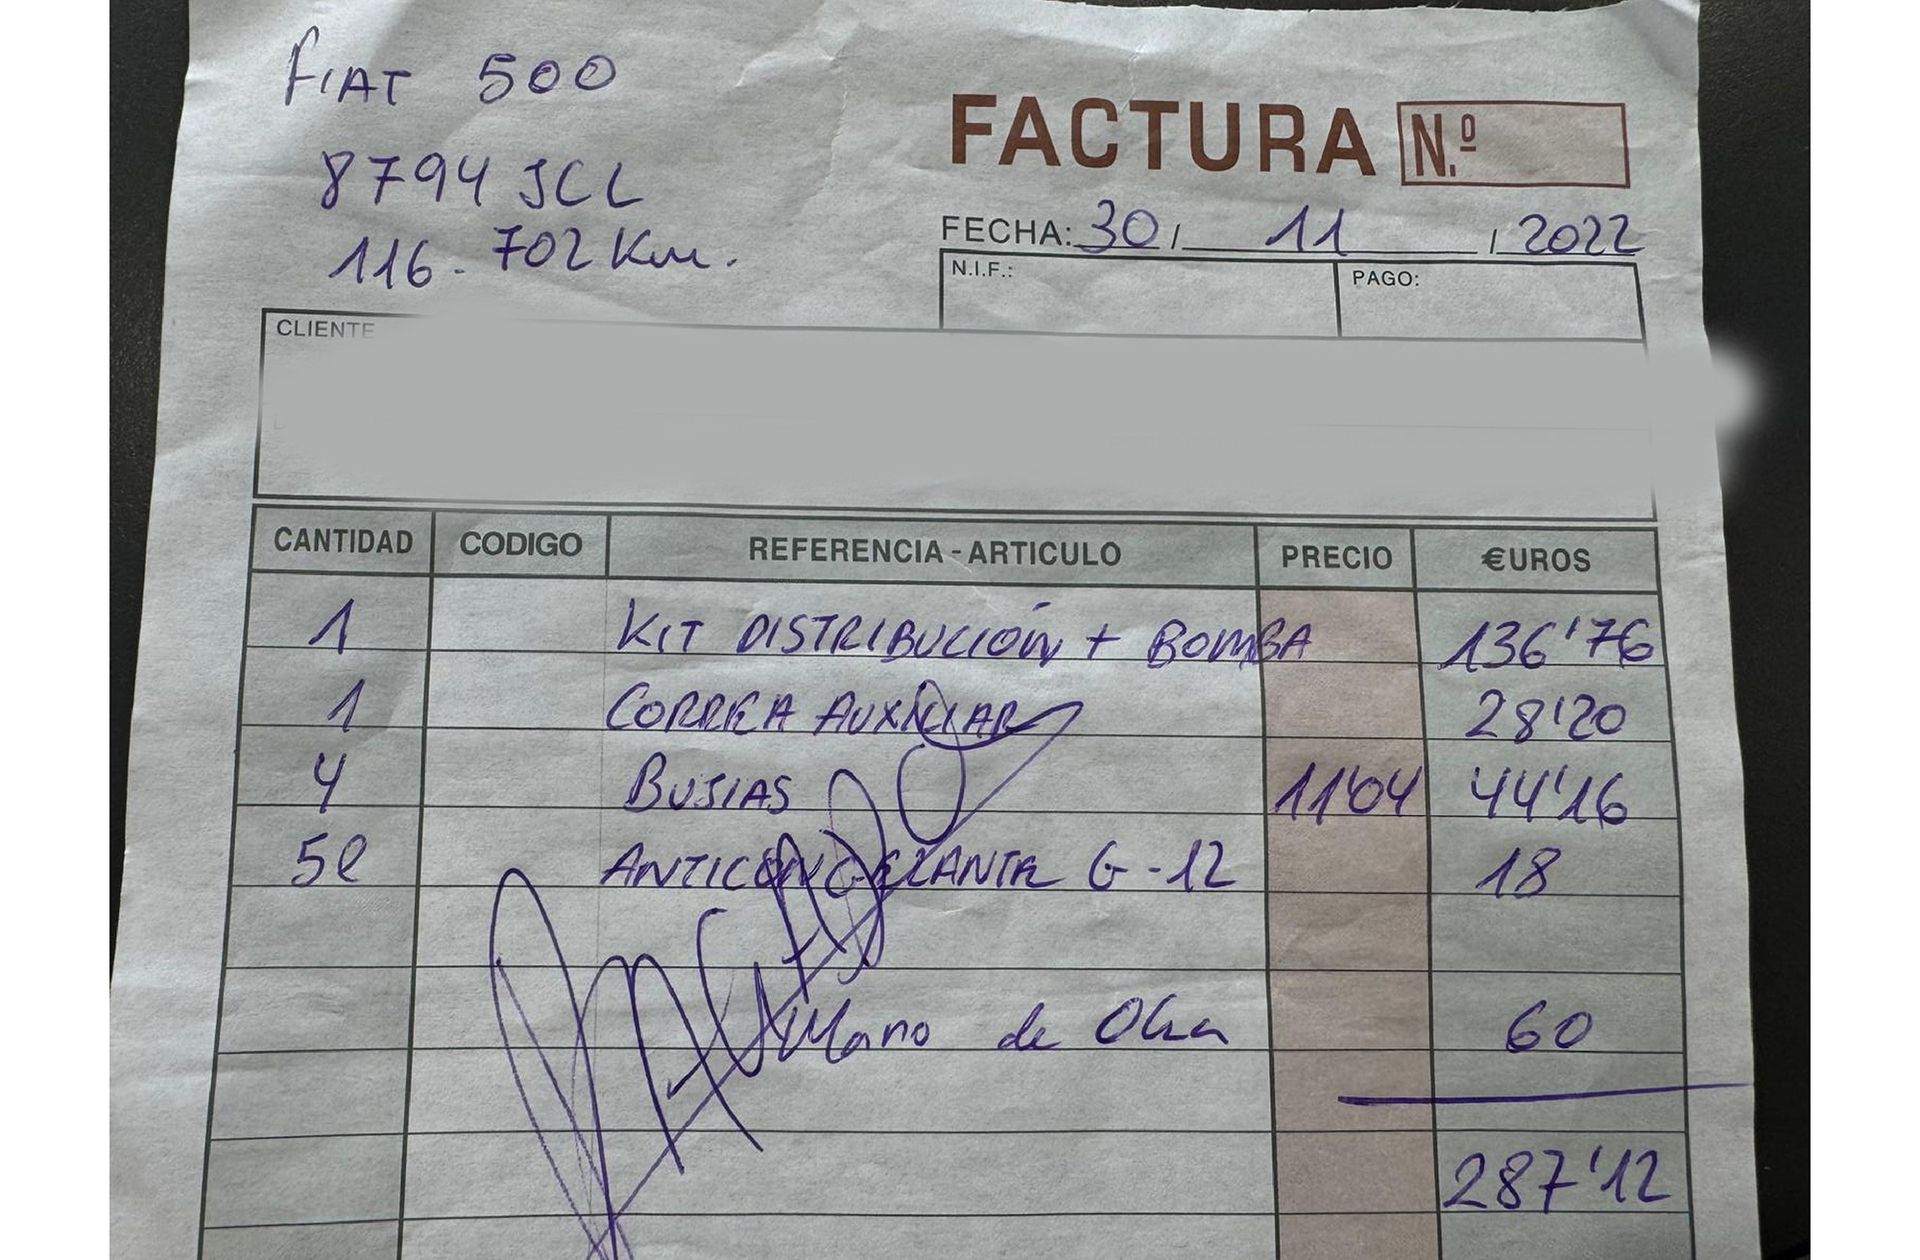 FIAT 500
8794 JCL
116.702 Km.
FACTURA N.º
FECHA: 30 / 11 / 2022
N.I.F.: PAGO:
CLIENTE
CANTIDAD CODIGO REFERENCIA - ARTICULO PRECIO €UROS
1 KIT DISTRIBUCIÓN + BOMBA 136'76
1 CORREA AUXILIAR 28'20
4 BUJIAS 11'04 44'16
5l ANTICONGELANTE G-12 18
Mano de Obra 60
287'12